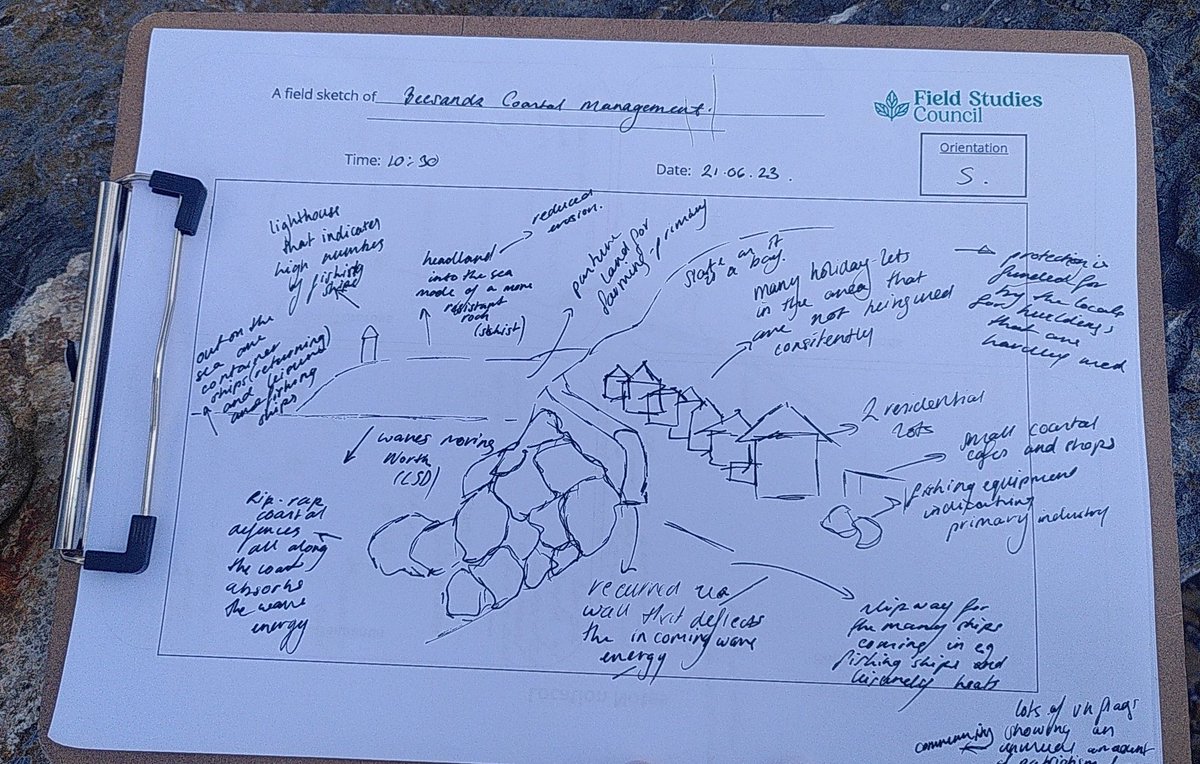 A field sketch of Beesands Coastal Management.
Field Studies
Council
Time: 10:30
Date: 21.06.23.
Orientation
S.
lighthouse
that indicates
high number
of fishing
headland → reduced
erosion.
into the sea
made of a more
resistant
rock
(schist)
pasture
land for
farming - primary
start of a bay.
many holiday lets
in the area that
are not being used
consitently
→ protection is
funded for
by the locals
for buildings
that are
hardly used
out on the
sea are
container
ships (returning)
and leisure
and fishing
ships
waves moving
North
(LSD)
2 residential
lots
small coastal
cafes and shops
fishing equipment
indicating
primary industry
Rip-rap
coastal
defences
all along
the coast
absorbs
the wave
energy
recurred sea
wall that deflects
the incoming wave
energy
slipway for
the many ships
coming in eg
fishing ships and
lots of uk flags
community showing an
unusual amount
of patriotism!